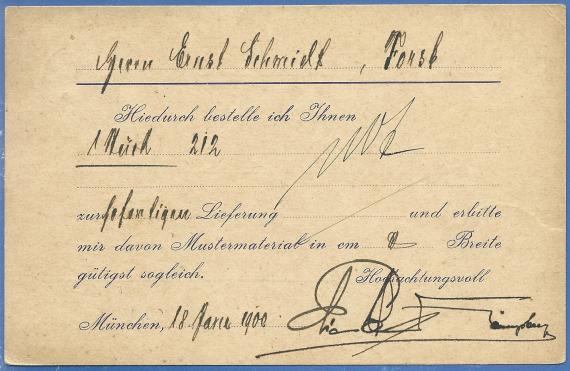 Herrn Ernst Schmidt, Forst
Hiedurch bestelle ich Ihnen
1 Stück 212
zur sofortigen Lieferung und erbitte
mir davon Mustermaterial in cm Breite
gütigst sogleich. Hochachtungsvoll
München, 18 Janr 1900